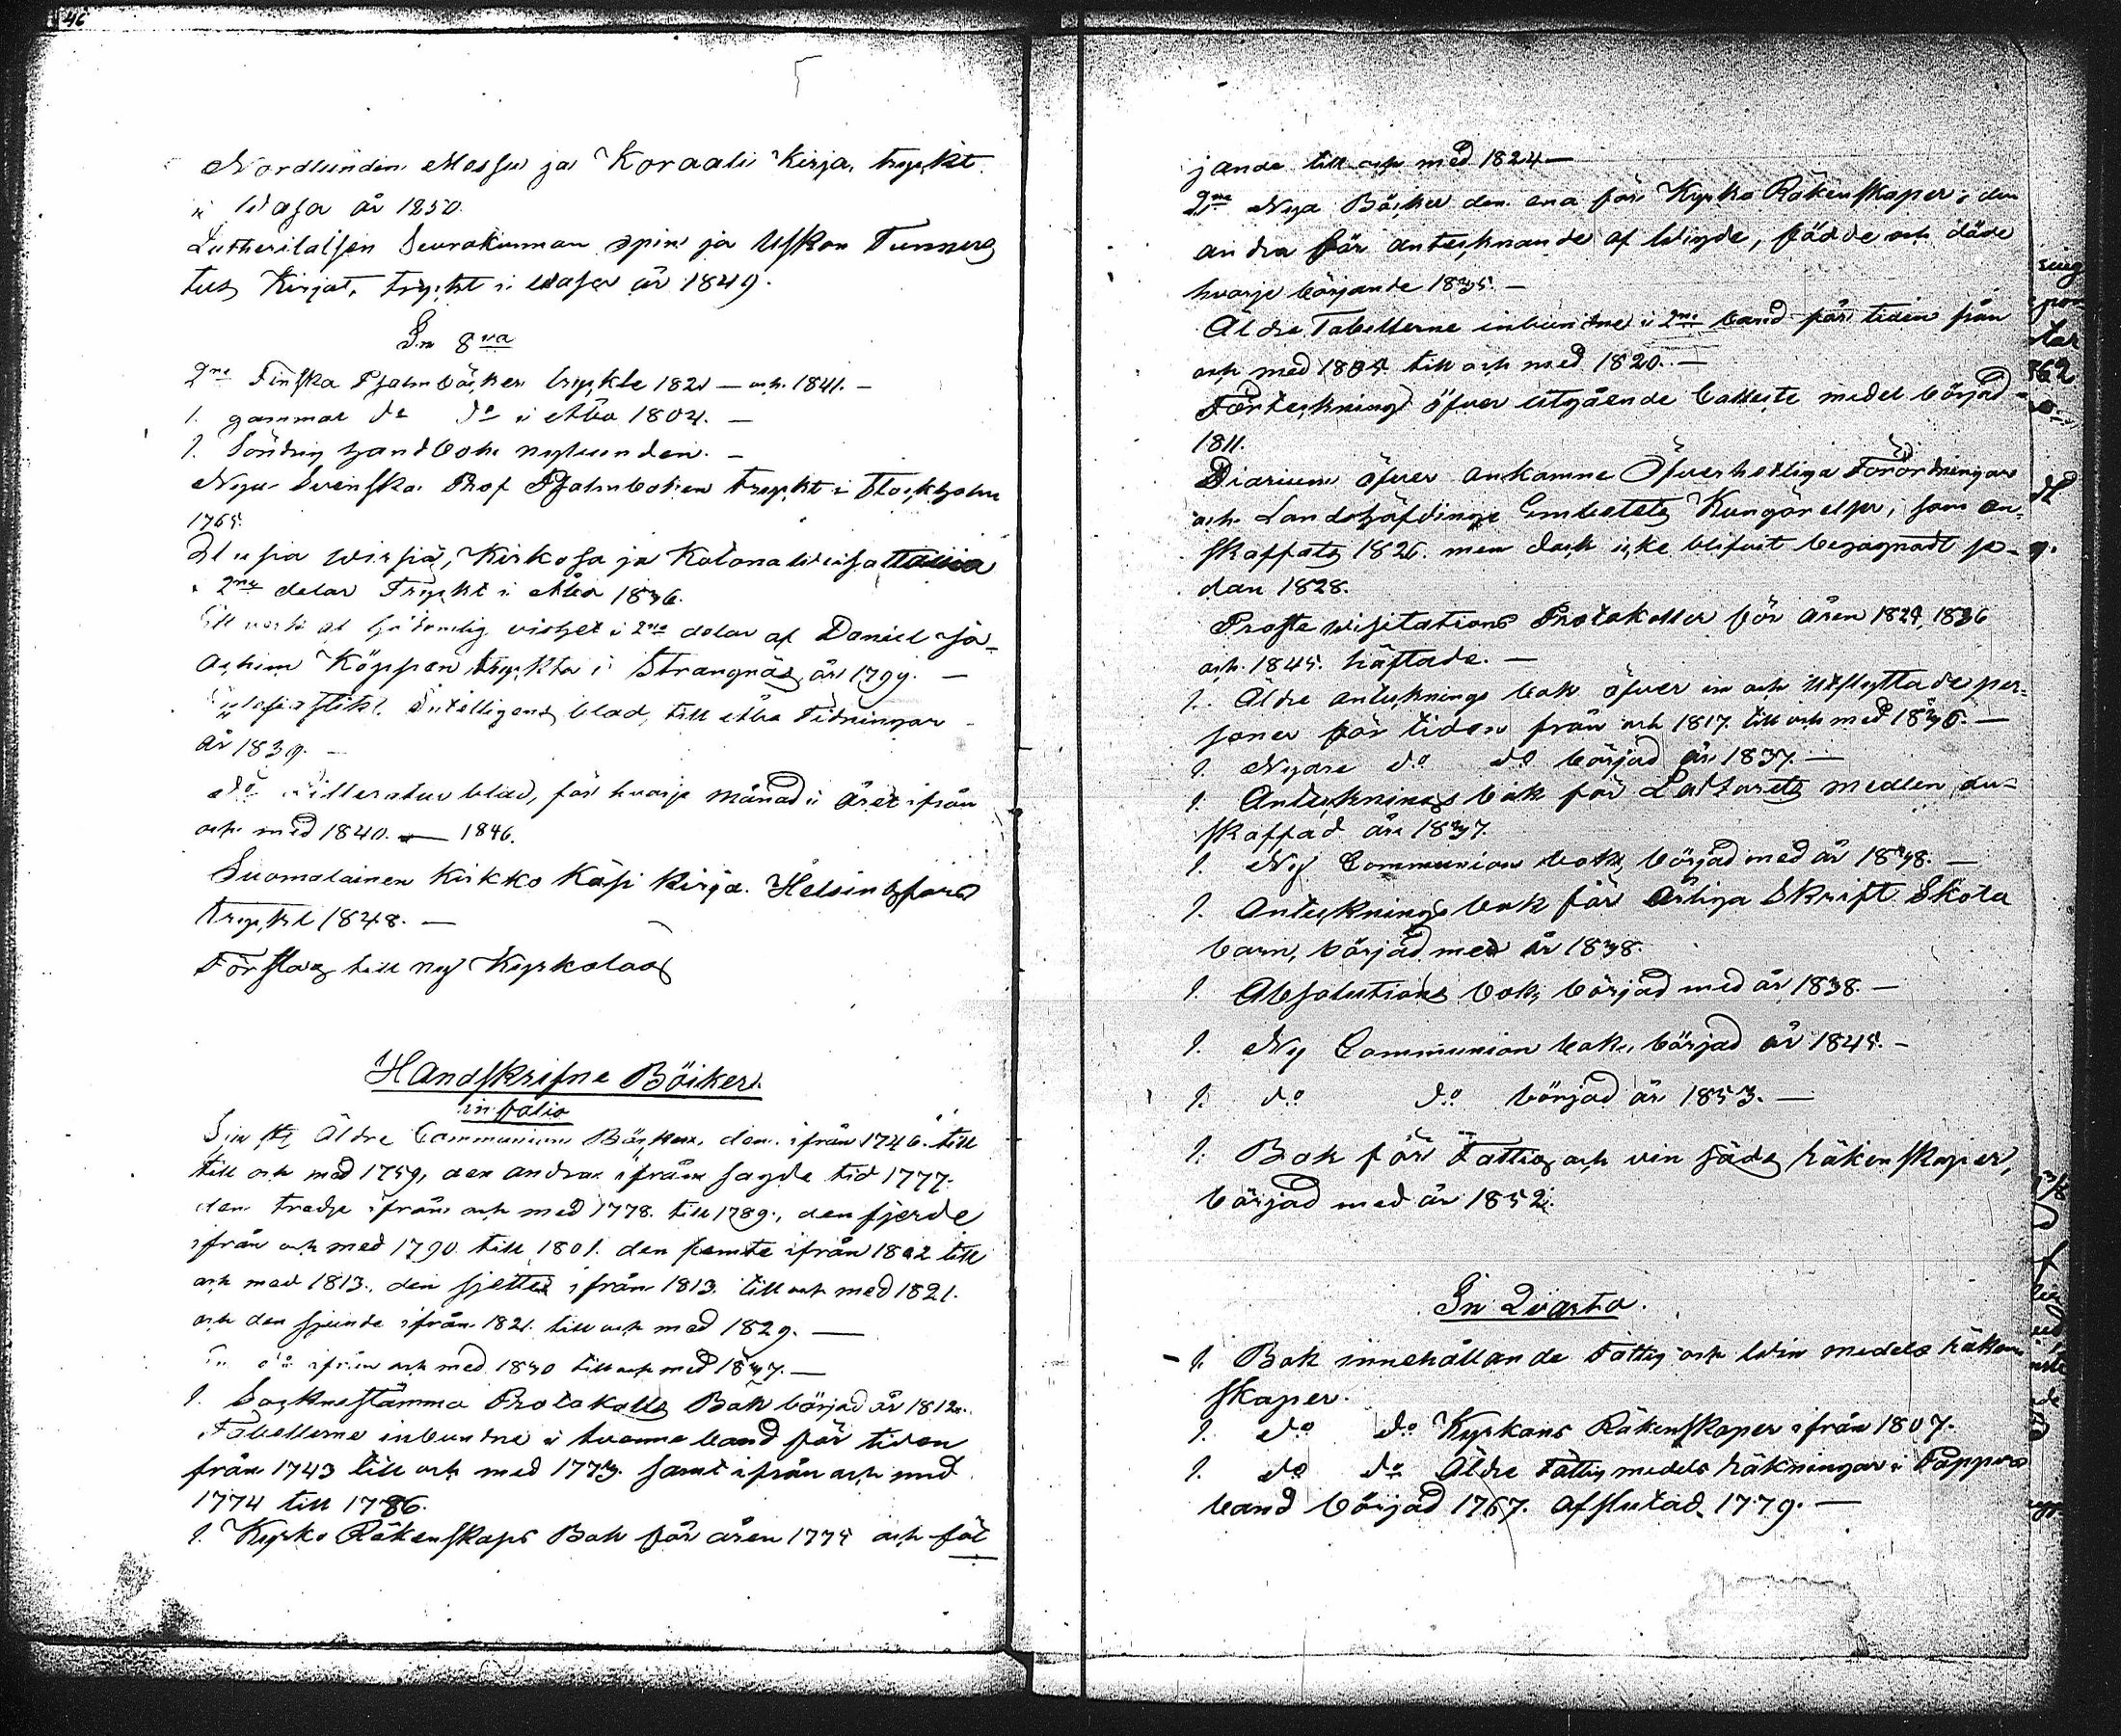 46
Nordlundin Massu ja Koraali Kirja, tryckt
i Wasa år 1850.
Lutherilaisen Seurakunnan opin ja Uskon Tunnus
tus Kirjat, tryckt i Wasa år 1849.
In 8va
2ne Finska Psalmböcker tryckte 1821 — och 1841. —
1. gammal do do i Åbo 1804. —
1. Söndrig handbok nybunden. —
Nya Svenska Prof Psalmboken tryckt i Stockholm
1765.
Uusia Wirsiä, Kirkosa ja Kotona
i 2ne delar Tryckt i Åbo 1836.
af vishet i 2ne delar af Daniel Jo-
achim Köppen tryckta i Strangnäs år 1799. —
Intelligens blad, till Åbo Tidningar
år 1839. —
do Litteratur blad, för hvarje månad i året ifrån
och med 1840. — 1846.
Suomalainen Kirkko Käsi Kirja. Helsingfors
tryckt 1848. —
Förslag till ny Kyrkolag
Handskrifne Böcker.
in folio
Sju st Äldre Communion Böcker, den ifrån 1746. till
till och med 1759, den andra ifrån sagde tid 1777.
den tredje ifrån och med 1778. till 1789., den fjerde
ifrån och med 1790. till 1801. den femte ifrån 1802 till
och med 1813., den sjette ifrån 1813. till och med 1821.
och den sjunde ifrån 1821. till och med 1829. —
do ifrån och med 1830 till och med 1837. —
1. Socknestämmo Protokolls Bok börjad år 1812.
Tabellerne inbundne i tvenne band för tiden
från 1743 till och med 1773. samt ifrån och med
1774 till 1786.
1. Kyrko Räkenskaps Bok för åren 1775 och föl
jande till och med 1824 —
2ne Nya Böcker den ena för Kyrko Räkenskaper, den
andra för antecknande af Wigde, födde och döde
hvarje börjande 1835. —
Äldre Tabellerne inbundne i 2ne band för tiden från
och med 1805 till och med 1820. —
Förteckning öfver utgående Collecte medel börjad
1811.
Diarium öfver ankomne Öfverhetliga Förordningar
och Landshöfdinge Embetets Kungörelser, som an-
skaffats 1826. men dock icke blifvit begagnadt se-
dan 1828.
Proste Wisitations Protokoller för åren 1829, 1836
och 1845. häftade. —
1. Äldre antecknings bok öfver in och utflyttade per-
soner för tiden från och 1817. till och med 1836. —
1. Nyare do do börjad år 1837. —
1. Antecknings bok för Lasarets medlen an-
skaffad år 1837.
1. Ny Communion bok, börjad med år 1838. —
1. Antecknings bok för årliga Skrift Skola
barn, börjad med år 1838.
1. Absolutions bok, börjad med år 1838. —
1. Ny Communion bok, börjad år 1845. —
1. do do börjad år 1853. —
1. Bok för Fattig och säds räkenskaper,
börjad med år 1852.
In Qvarto.
1. Bok innehållande Fattig och Win medels räken
skaper.
1. do do Kyrkans Räkenskaper ifrån 1807.
1. do do Äldre Fattig medels räkningar i Pappers
band börjad 1767. afslutad 1779. —